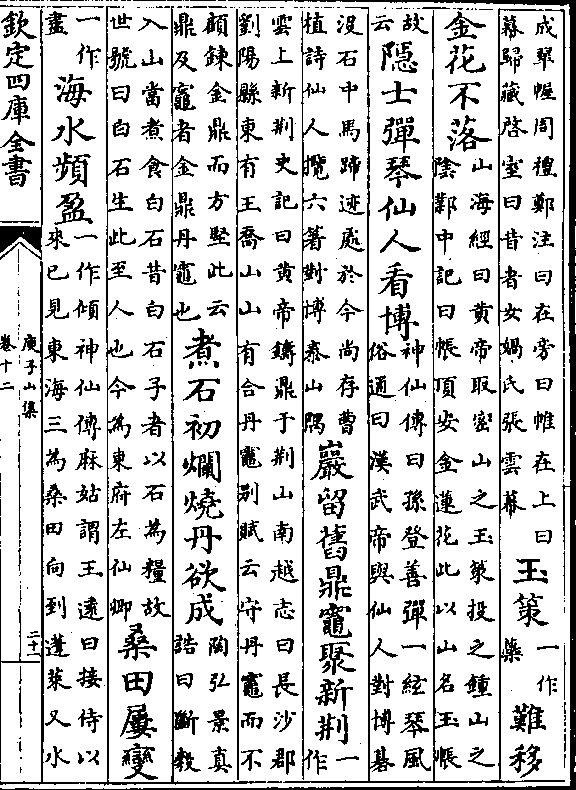 成翠幄周禮鄭注曰在旁曰帷在上曰
幕歸藏啓室曰昔者女媧氏張雲幕
玉策
一作
藥
難移
金花不落
山海經曰黄帝取密山之玉策投之鍾山之
陰鄴中記曰帳頂安金蓮花此以山名玉帳
故
云
隱士彈琴仙人看博
神仙傳曰孫登善彈一絃琴風
俗通曰漢武帝與仙人對博碁
没石中馬蹄迹處於今尚存曹
植詩仙人攬六箸對博泰山隅
巖留舊鼎竈聚新荆
一
作
雲上新荆史記曰黄帝鑄鼎于荆山南越志曰長沙郡
劉陽縣東有王喬山山有合丹竈别賦云守丹竈而不
顧鍊金鼎而方堅此云
鼎及竈者金鼎丹竈也
煮石初爛燒丹欲成
陶弘景真
誥曰斷穀
入山當煮食白石昔白石子者以石為糧故
世號曰白石生此至人也今為東府左仙卿
桑田屢變
一作
盡
海水頻盈
一作傾神仙傳麻姑謂王遠曰接侍以
來已見東海三為桑田向到蓬萊又水
欽定四庫全書
庾子山集
卷十二
二十一